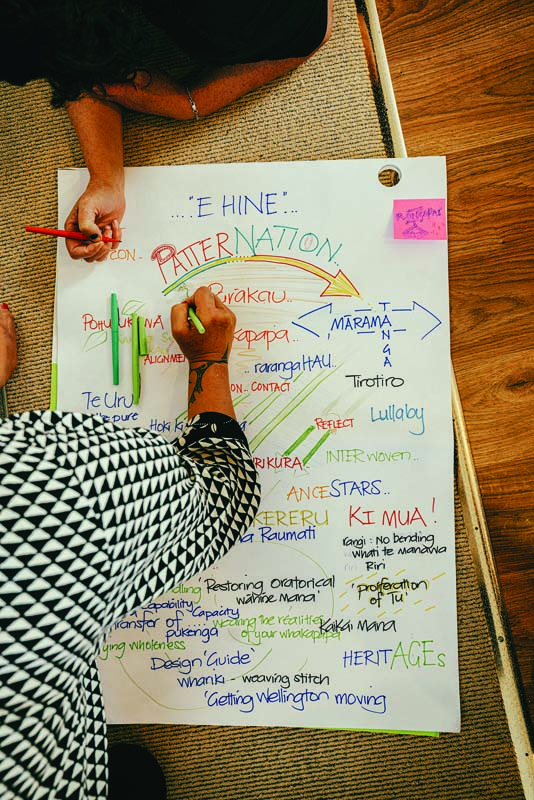 ...."E HINE"...
CON..
PATTERNATION..
Pūrākau..
POHUTUKAWA
MĀRAMATANGA
ALIGNMENT
rarangaHAU..
CONTACT
Tirotiro
Te Uru
pure
Hoki Ki
REFLECT
Lullaby
INTERwoven..
ANCESTARS..
KERERU
KI MUA!
Raumati
rangi: No bending
whati te manawa
Riri
'Restoring oratorical
wāhine mana'
'proliferation
of Tu'
Capability
Capacity
Transfer of ....
pukenga
wearing the realities
of your whakapapa
Kaikai mana
wholeness
Design 'Guide'
HERITAGEs
whāriki - weaving stitch
'Getting Wellington moving